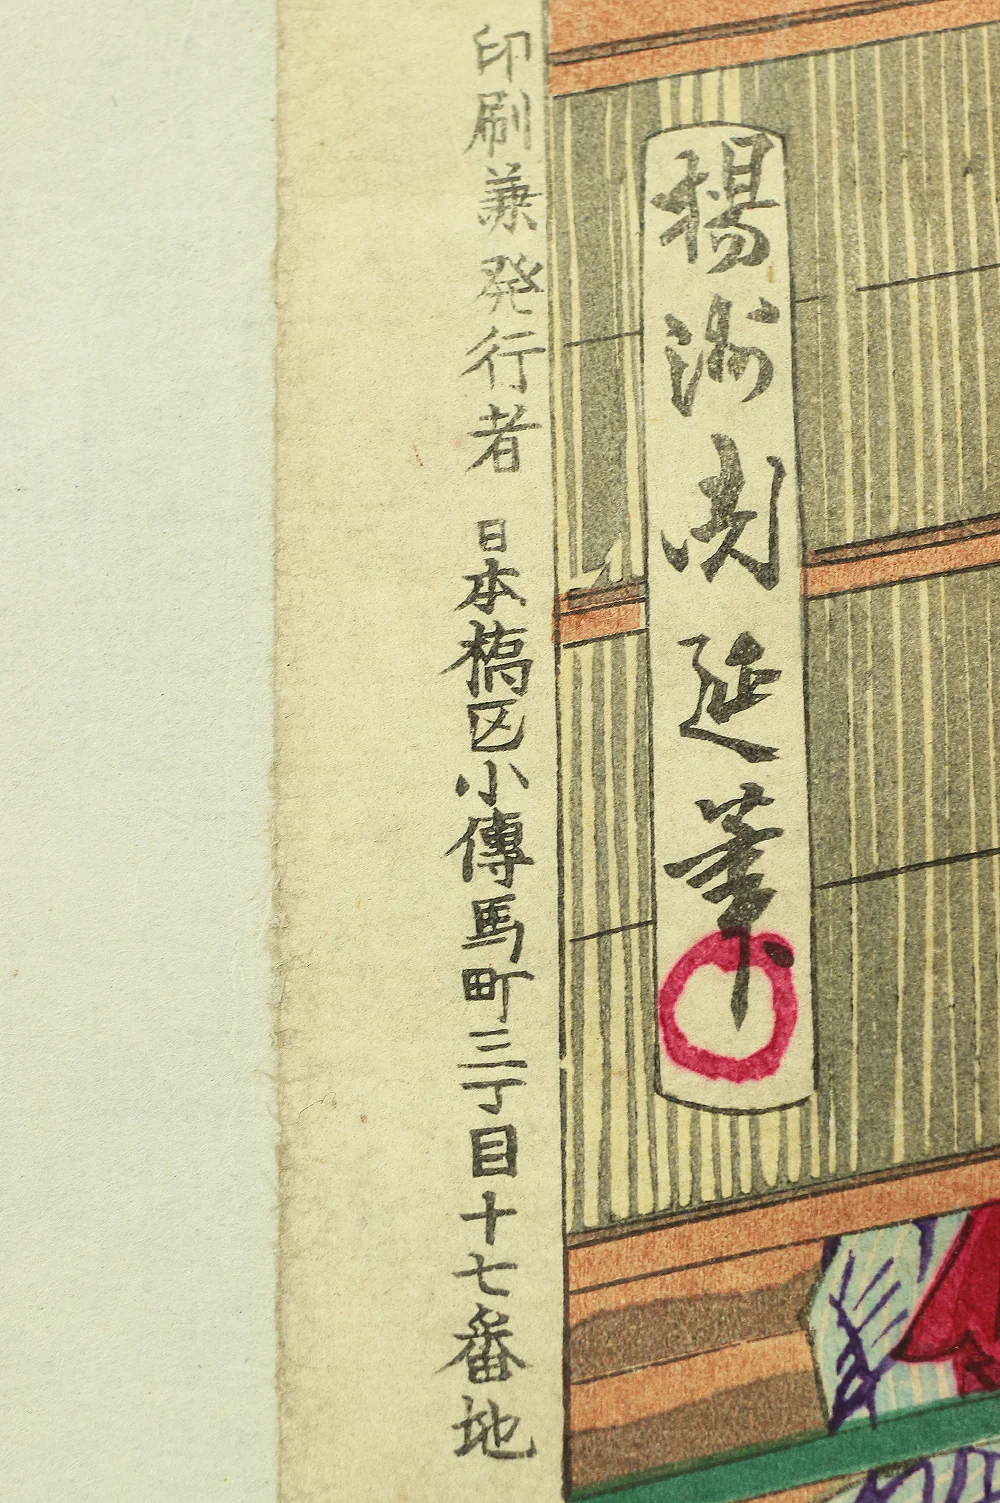 楊洲周延筆
印刷兼発行者 日本橋区小傳馬町三丁目十七番地